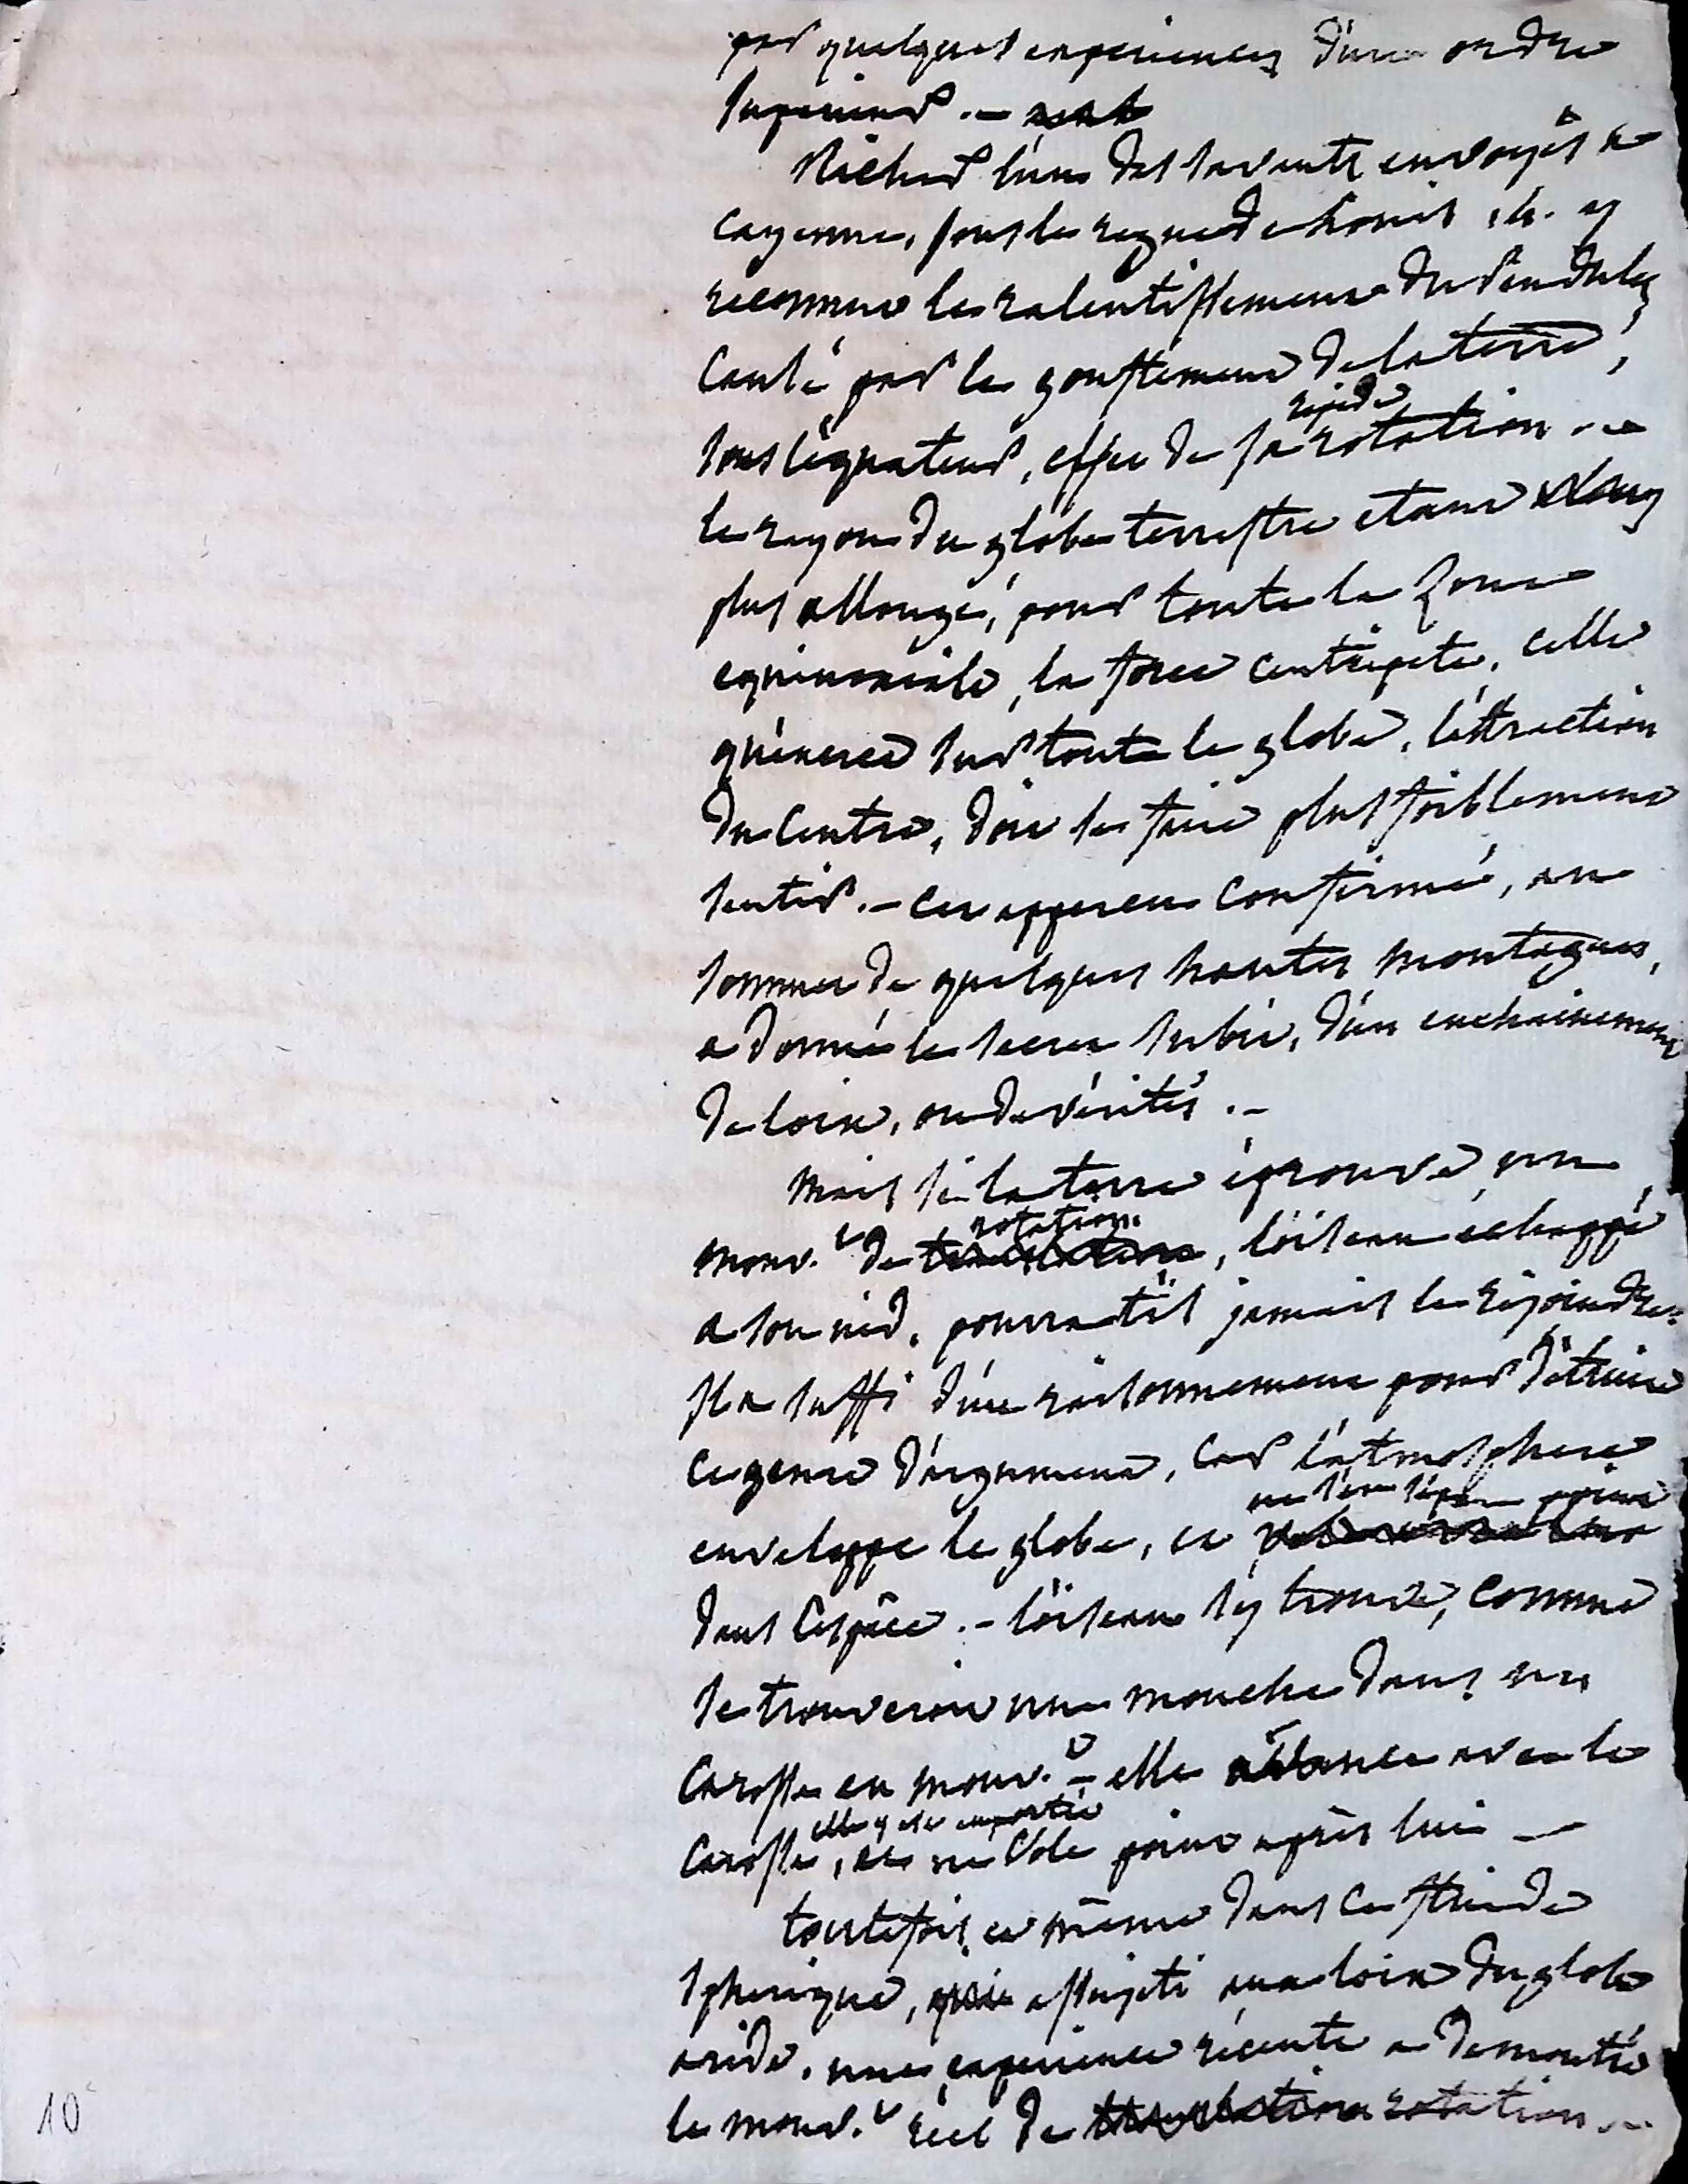 par quelques experiences d'un ordre
superieur. –
Richer l'un des savants envoyés a
cayenne, sous le regne de Louis 14. y
reconnut le ralentissement du pendule,
causé par le gonflement de la terre,
rapide
sous l'équateur, effet de sa rotation. –
le rayon du globe terrestre etant
plus allongé, pour toute la Zone
equinoxiale, la force centripete, celle
qu'exerce sur tout le globe, l'attraction
du centre, doit se faire plus foiblement
sentir. – cet apperçu confirmé, au
sommet de quelques hautes montagnes,
a donné le secret subit, d'un enchainement
de loix, ou de vérités. –
mais si la terre éprouve un
rotation
mouv.t de translation, l'oiseau échappé
a son nid, pourra t'il jamais le rejoindre –
Il a suffi d'un raisonnement pour détruire
ce genre d'argument, car l'atmosphere
ne s'en sépare point
enveloppe le globe, et
dans l'espâce. – l'oiseau s'y trouve, comme
se trouveroit une mouche dans un
carosse en mouv.t – elle avance avec le
elle y est emportée
carosse, et ne vole point après lui –
toutefois, et même dans ce fluide
spherique, qui assujeti aux loix du globe
aride, une experience récente a demontré
le mouv.t réel de translation rotation. –
10